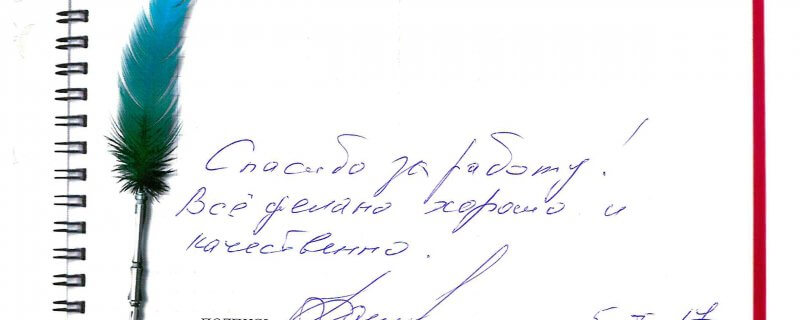 Спасибо за работу!
Всё делано хорошо и
качественно.